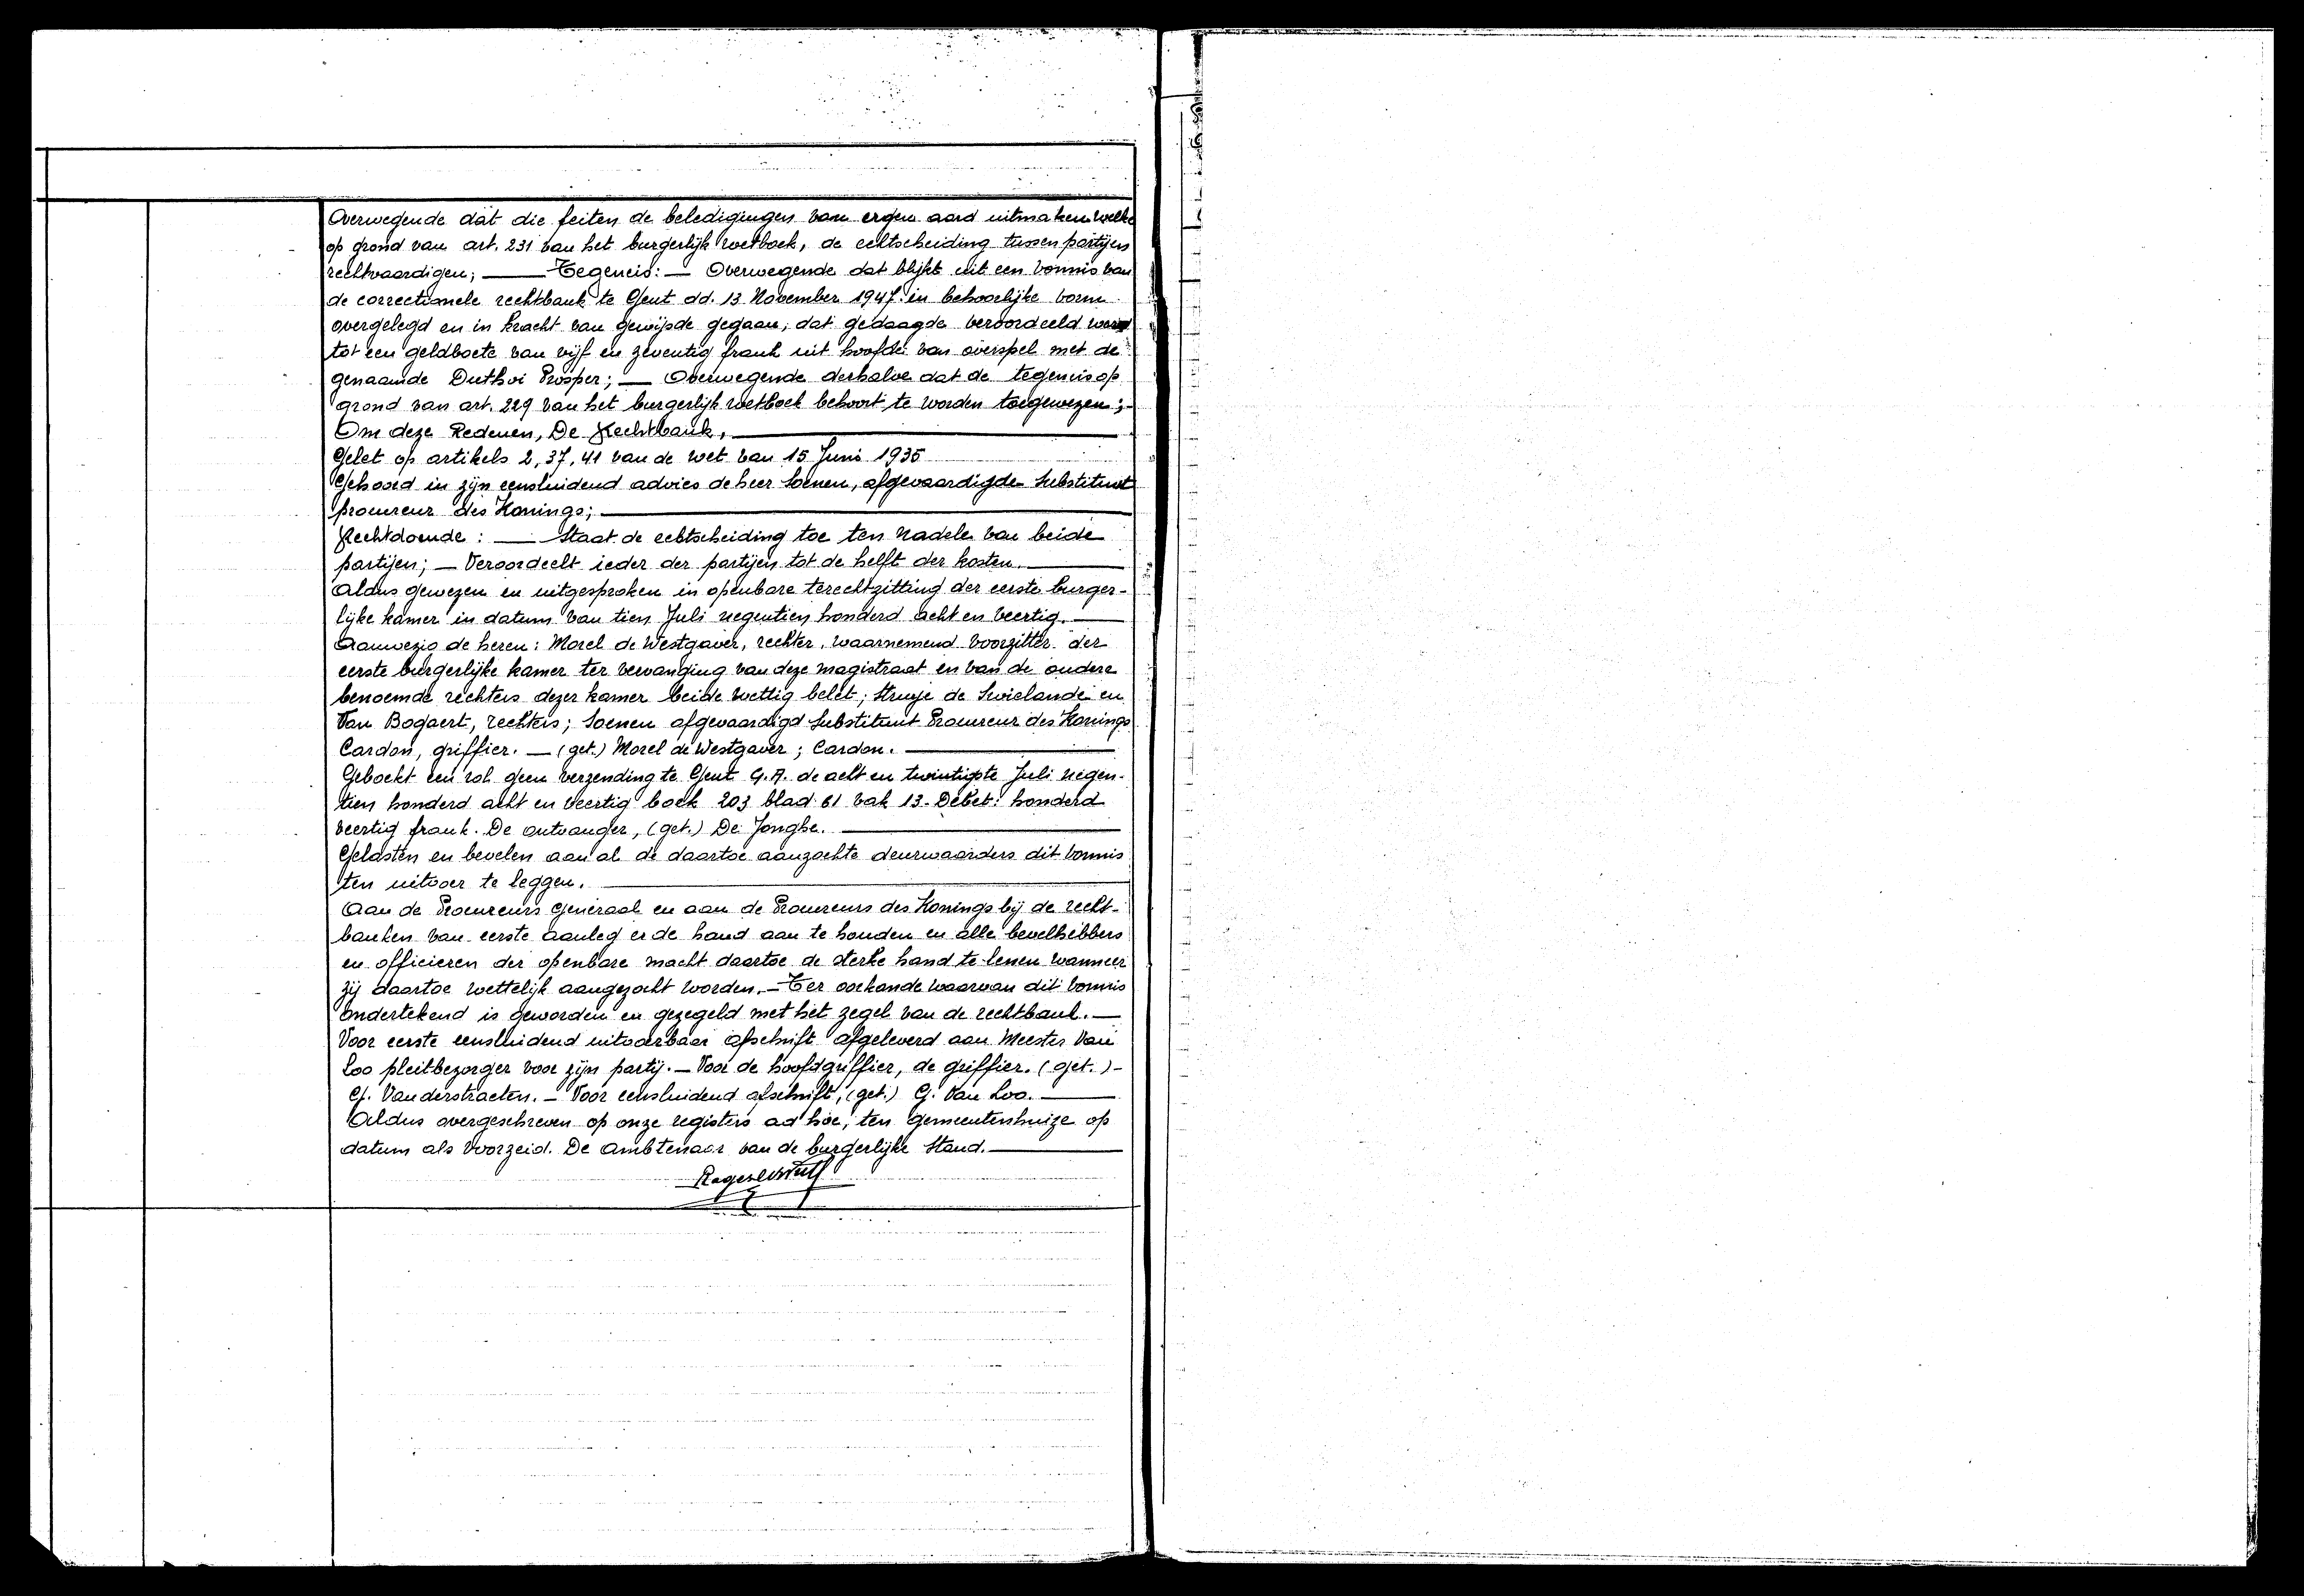 Overwegende dat die feiten de beledigingen van ergen aard uitmaken welke
op grond van art. 231 van het burgerlijk wetboek, de echtscheiding tussen partijen
rechtvaardigen; — Tegeneis: — Overwegende dat blijkt uit een vonnis van
de correctionele rechtbank te Gent dd. 13 November 1947 in behoorlijke vorm
overgelegd en in kracht van gewijsde gegaan, dat gedaagde veroordeeld werd
tot een geldboete van vijf en zeventig frank uit hoofde van overspel met de
genaamde Duthoi Prosper; — Overwegende derhalve dat de tegeneis op
grond van art. 229 van het burgerlijk wetboek behoort te worden toegewezen;-
Om deze Redenen, De Rechtbank, —
Gelet op artikels 2, 37, 41 van de wet van 15 Juni 1935
Gehoord in zijn eensluidend advies de heer Soenen, afgevaardigde Substituut
procureur des Konings; —
Rechtdoende : — Staat de echtscheiding toe ten nadele van beide
partijen; — Veroordeelt ieder der partijen tot de helft der kosten. —
Aldus gewezen en uitgesproken in openbare terechtzitting der eerste burger-
lijke kamer in datum van tien Juli negentien honderd acht en veertig. —
Aanwezig de heren: Morel de Westgaver, rechter, waarnemend voorzitter der
eerste burgerlijke kamer ter vervanging van deze magistraat en van de oudere
benoemde rechters dezer kamer beide wettig belet; Struye de Swielande en
Van Bogaert, rechters; Soenen afgevaardigd Substituut Procureur des Konings
Cardon, griffier. — (get.) Morel de Westgaver ; Cardon. —
Geboekt een rol geen verzending te Gent G.A. de acht en twintigste Juli negen-
tien honderd acht en veertig boek 203 blad 61 vak 13. Debet: honderd
veertig frank. De ontvanger, (get.) De Jonghe. —
Gelasten en bevelen aan al de daartoe aanzochte deurwaarders dit vonnis
ten uitvoer te leggen. —
Aan de Procureurs Generaal en aan de Procureurs des Konings bij de recht-
banken van eerste aanleg er de hand aan te houden en alle bevelhebbers
en officieren der openbare macht daartoe de sterke hand te lenen wanneer
zij daartoe wettelijk aangezocht worden. — Ter oorkonde waarvan dit vonnis
ondertekend is geworden en gezegeld met het zegel van de rechtbank. —
Voor eerste eensluidend uitvoerbaar afschrift afgeleverd aan Meester Van
Loo pleitbezorger voor zijn partij. — Voor de hoofdgriffier, de griffier. (get.) -
G. Vanderstraeten. — Voor eensluidend afschrift, (get.) G. Van Loo. —
Aldus overgeschreven op onze registers ad hoc, ten gemeentenhuize op
datum als voorzeid. De Ambtenaar van de burgerlijke Stand. —